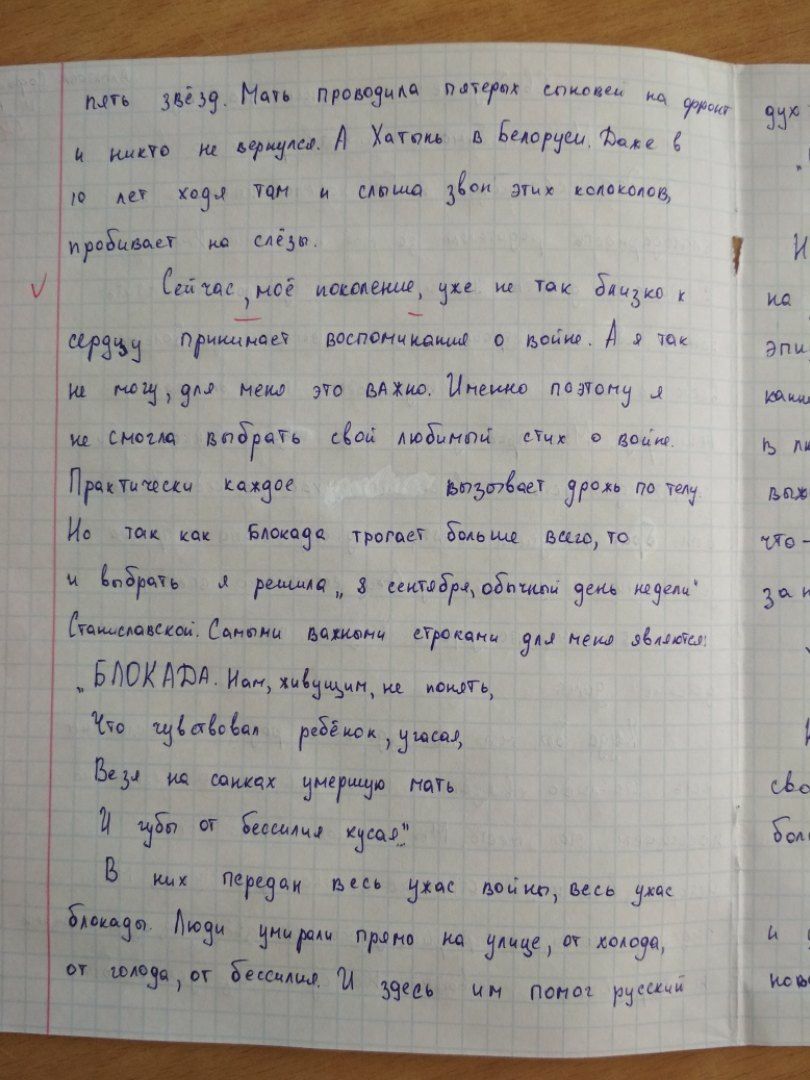 пять звёзд. Мать проводила пятерых сыновей на фронт
и никто не вернулся. А Хатынь в Белоруси. Даже в
10 лет ходя там и слыша звон этих колоколов,
пробивает на слёзы.
Сейчас, моё поколение, уже не так близко к
сердцу принимает воспоминания о войне. А я так
не могу, для меня это важно. Именно поэтому я
не смогла выбрать свой любимый стих о войне.
Практически каждое вызывает дрожь по телу.
Но так как Блокада трогает больше всего, то
и выбрать я решила „8 сентября, обычный день недели"
Станиславской. Самыми важными строками для меня являются:
„БЛОКАДА. Нам, живущим, не понять,
Что чувствовал ребёнок, угасая,
Везя на санках умершую мать
И губы от бессилия кусая."
В них передан весь ужас войны, весь ужас
блокады. Люди умирали прямо на улице, от холода,
от голода, от бессилия. И здесь им помог русский
дух
на
что-
и